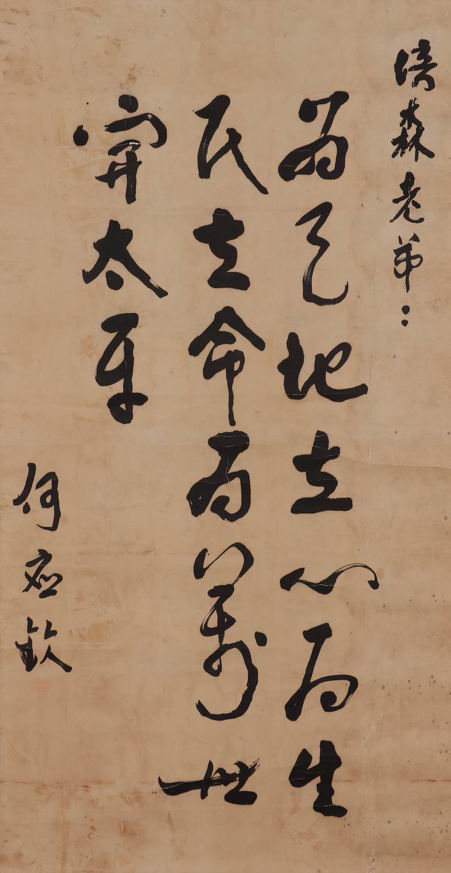 培森老弟：
為天地立心為生
民立命為萬世
開太平
何應欽